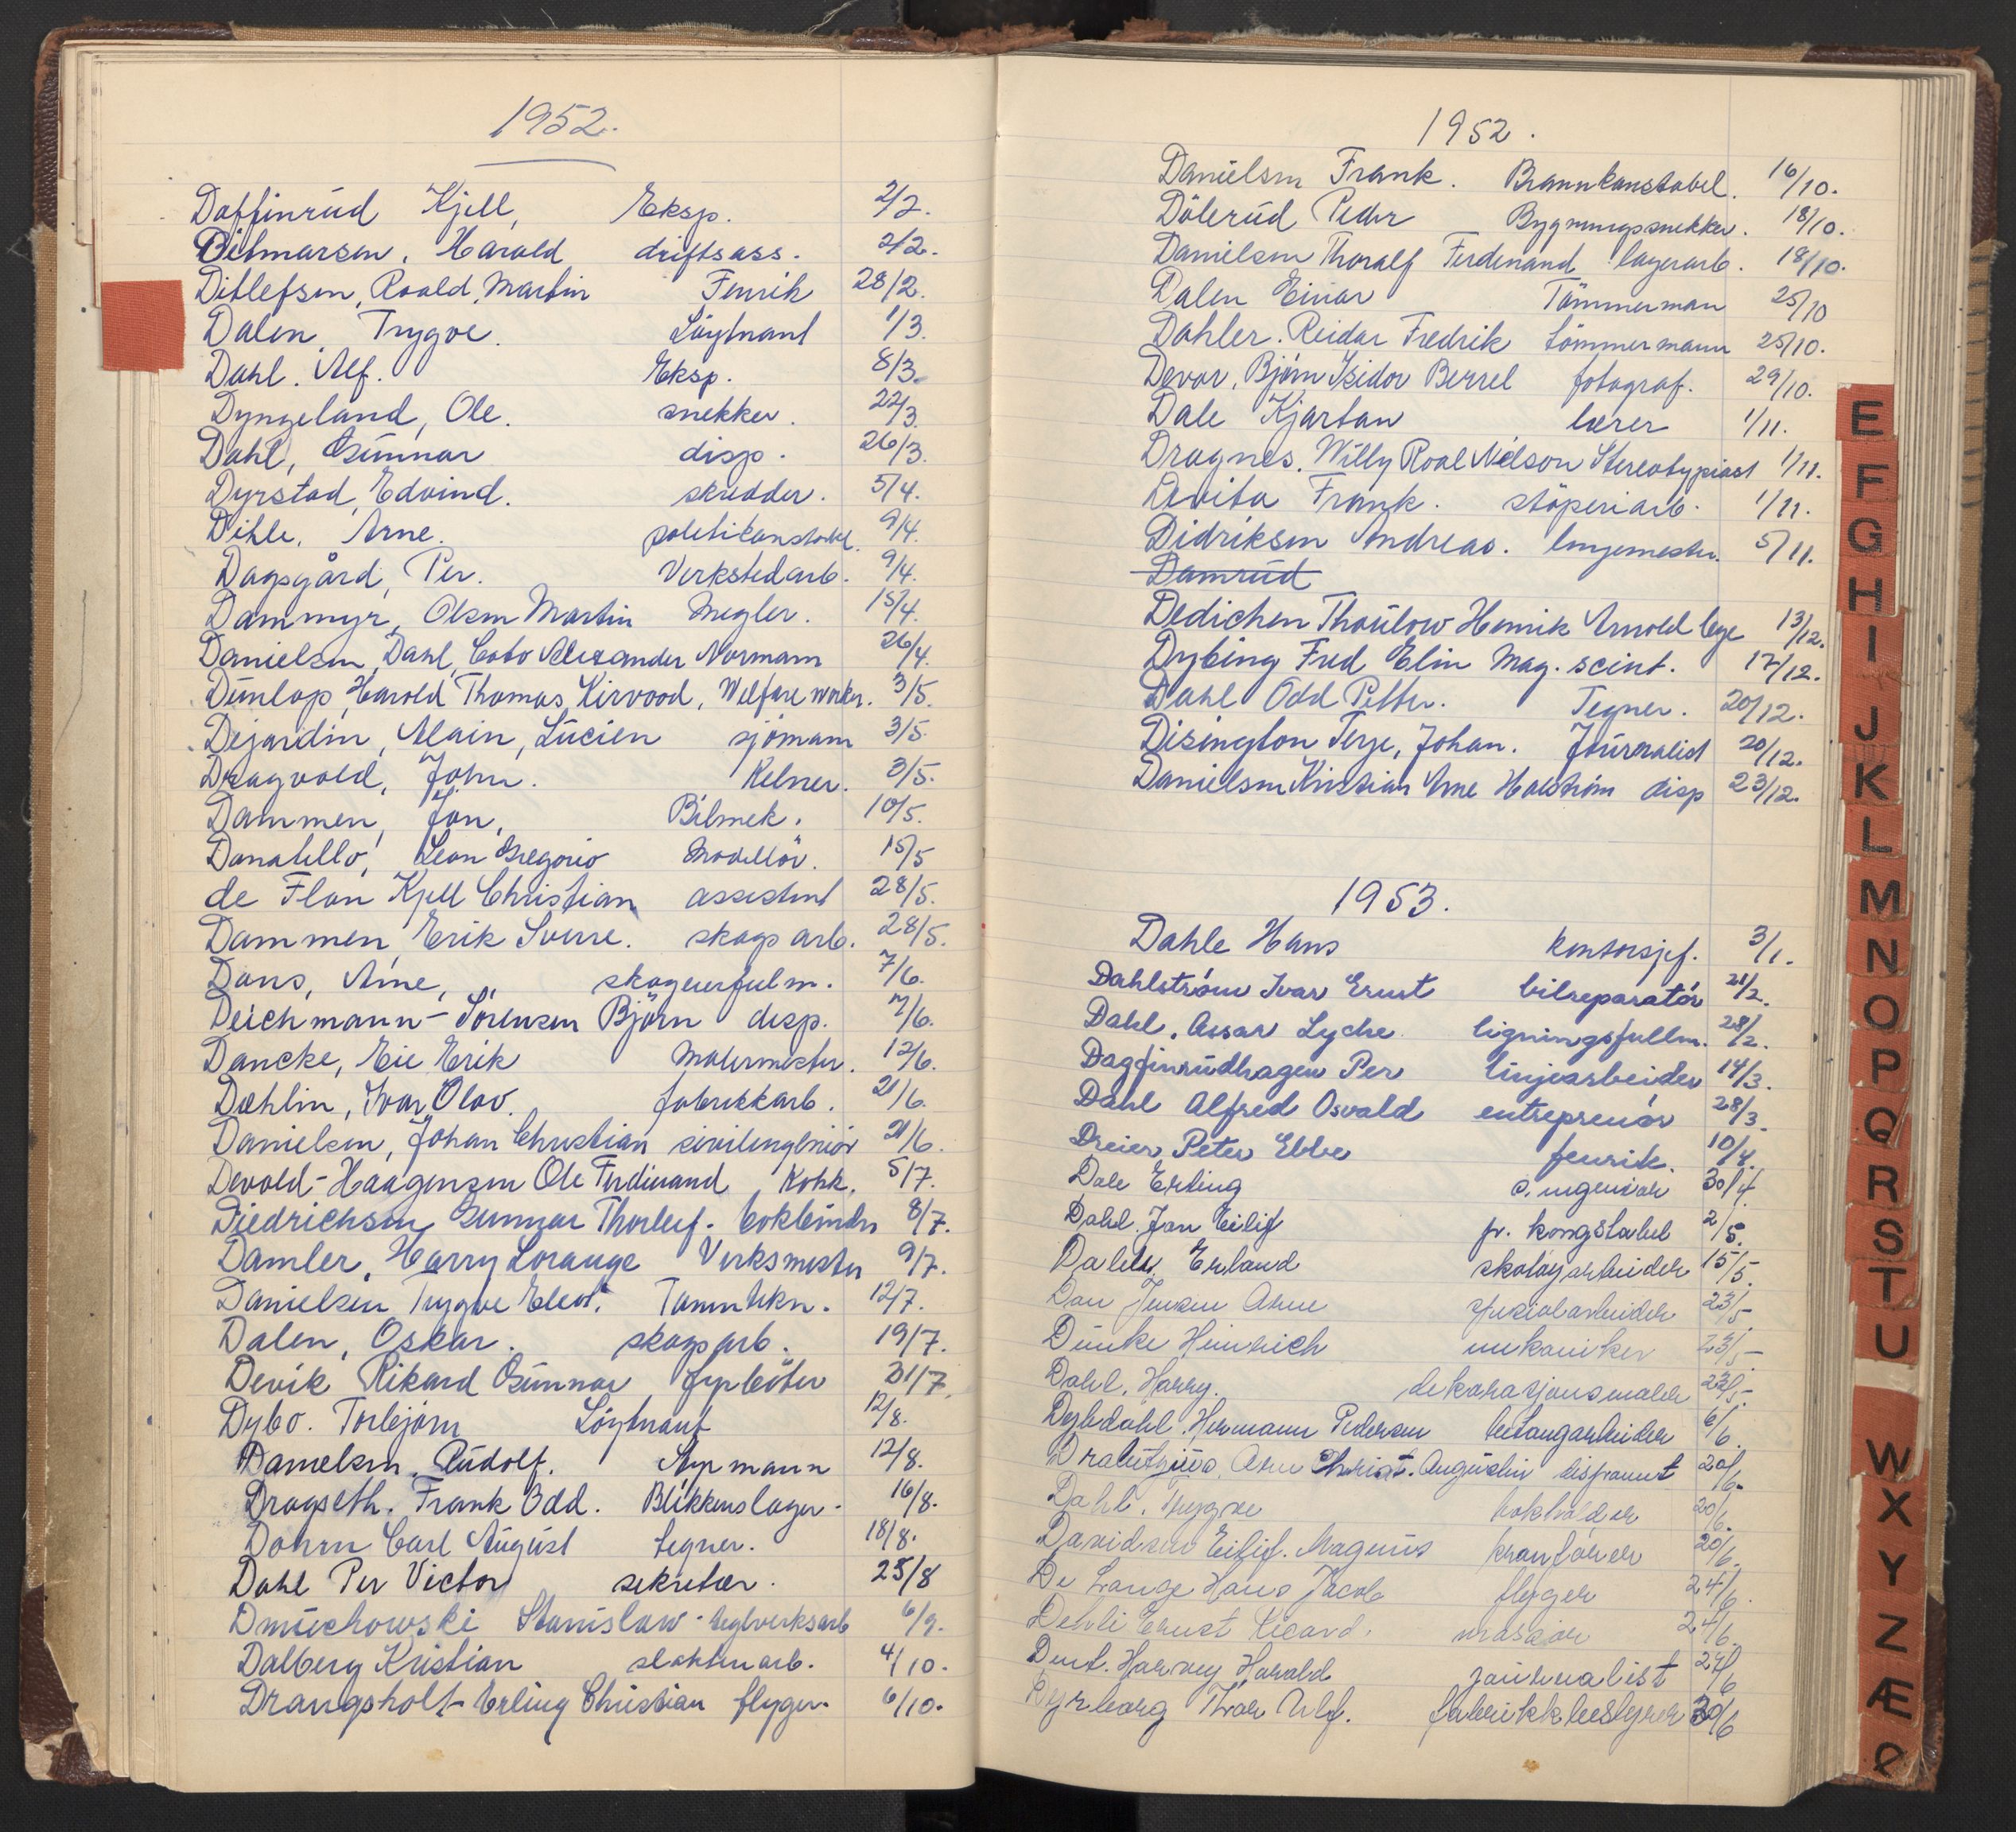 1952.
Doffinrud Kjell, Eksp. 2/2.
Ditmarsen, Harald driftsass. 2/2.
Ditlefsen, Roald, Martin Fenrik 28/2.
Dalen, Trygve. Löytnant 1/3.
Dahl, Alf. Eksp. 8/3.
Dyngeland, Ole. snekker. 22/3.
Dahl, Gunnar disp. 26/3.
Dyrstad, Edvind. skredder. 5/4.
Dihle, Arne. politikonstabel. 9/4.
Dagsgård, Per. Verkstedarb. 9/4.
Dammyr, Olsen Martin Megler. 15/4.
Danielsen, Dahl, Coto Alexander Normann 26/4.
Dunlop, Harold Thomas Kirvood, Welfare worker. 3/5.
Dejardin, Alain, Lucien sjömann 3/5.
Dragvold, John. Kelner. 3/5.
Dammen, Jon, Bilmek. 10/5.
Donatello, Leon Gregorio Modellör. 15/5
de Flon Kjell Christian assistent 28/5.
Dammen, Erik Sverre. skogsarb. 28/5.
Dons, Arne, skogeierfulm. 7/6.
Deichmann-Sörensen Björn disp. 7/6.
Dancke, Eie Erik Malermester. 12/6.
Dæhlin, Ivar Olav. fabrikkarb. 21/6.
Danielsen, Johan Christian sivilingeniör 21/6.
Devold-Haagensen Ole Ferdinand Kokk. 5/7.
Diedrichsen Gunnar Thorleif. bokbinder 8/7.
Damler, Harry Lorange Verksmester 9/7.
Danielsen Trygve Elert. Tanntekn. 12/7.
Dalen, Oskar. skogsarb. 19/7.
Devik Rikard Gunnar fyrböter 31/7.
Dybo. Torbjørn Löytnant 12/8.
Danielsen, Rudolf. Styrmann 12/8.
Dragseth. Frank Odd. Blikkenslager. 16/8.
Dohrn Carl August tegner. 18/8.
Dahl Per Victor sekretær. 23/8
Dmuchowski Stanislaw teglverksarb 6/9.
Dalberg Kristian slakteriarb. 4/10.
Drangsholt Erling Christian flyger. 6/10.
1952.
Danielsen Frank. Brannkonstabel. 16/10.
Dölerud Peder Bygningssnekker. 18/10.
Danielsen Thoralf Ferdinand lagerarb. 18/10.
Dalen Einar Tömmerman 25/10
Dahler. Reidar Fredrik tömmermann 25/10.
Devor, Bjørn Isidor Berrel fotograf. 29/10.
Dale Kjartan lærer 1/11.
Dragnes. Willy Roal Nilson Stereotypiast 1/11.
Devita Frank. stöperiarb. 1/11.
Didriksen Andreas. linjemester. 5/11.
Damrud
Dedichen Thaulow Henrik Arnold lege 13/12.
Dybing Fred Elin Mag. scient. 17/12.
Dahl Odd Petter. Tegner. 20/12.
Disington Terje, Johan. Journalist 20/12.
Danielsen Kristian Arne Holström disp 23/12.
1953.
Dahle Hans kontorsjef. 3/1.
Dahlström Ivar Ernst bilreparatör 21/2.
Dahl, Assar Lyche ligningsfullm. 28/2.
Dagfinrudhagen Per linjearbeider 14/3.
Dahl Alfred Osvald entreprenör 28/3.
Dreier, Peter Ebbe fenrik. 10/4.
Dale Erling o. ingeniör 30/4
Dahl. Jan Eilif pr. kongstabel 2/5.
Dahlen Erland skotøyarbeider 15/5.
Dan Jensen Arne spesialarbeider 23/5.
Dunke Heinrich mekaniker 23/5
Dahl, Harry. dekorasjonsmaler 23/5
Dybdahl Hermann Pedersen betongarbeider 6/6.
Arne Christ. Augustin 20/6.
Dahl, Trygve bokholder 20/6.
Davidsen Eilif. Magnus kranförer 20/6.
De Lange Hans Jacob flyger 24/6.
Dehli Ernst Ricard. massör 24/6.
Dent. Harvey Harald journalist 24/6
Dyrborg Thor Ulf. fabrikkbestyrer 30/6
E
F
G
H
I
J
K
L
M
N
O
P
Q
R
S
T
U
W
X
Y
Z
Æ